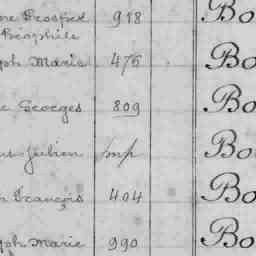 ne Prosper 918 Bo
Théophile
ph Marie 475 Bo
e Georges 809 Bo
us Julien imp Bo
n François 404 Bo
ph Marie 990 Bo